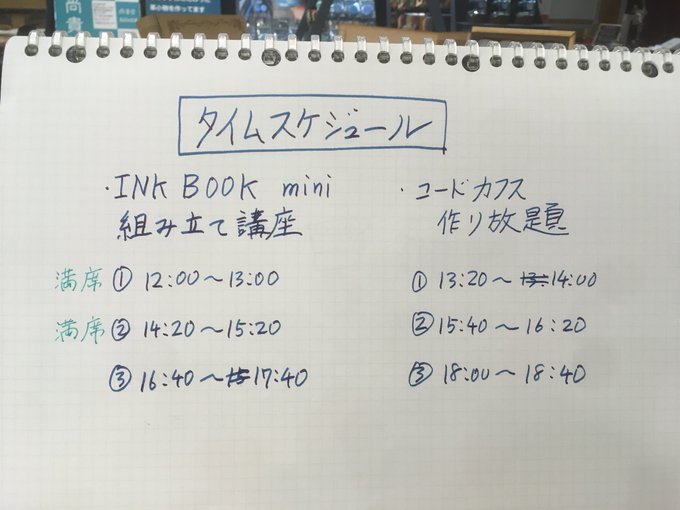 尚貴
タイムスケジュール
・INK BOOK mini
組み立て講座
満席 ① 12:00〜13:00
満席 ② 14:20〜15:20
③ 16:40〜17:40
・コードカフス
作り放題
① 13:20〜14:00
② 15:40〜16:20
③ 18:00〜18:40